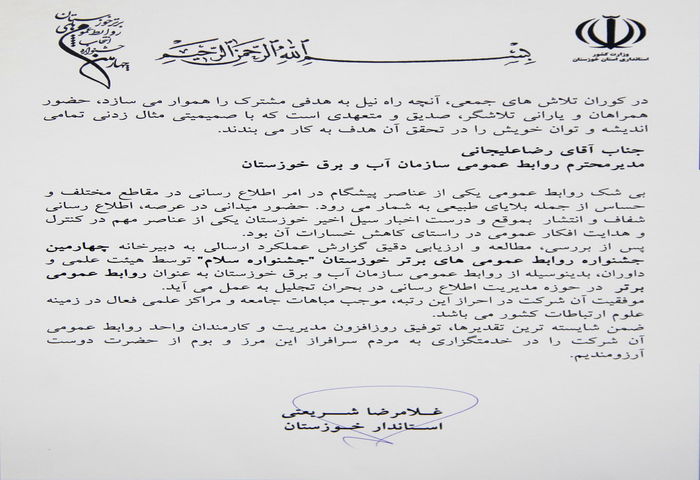 وزارت کشور
استانداری استان خوزستان
بسم الله الرحمن الرحیم
چهارمین
جشنواره
انتخاب
روابط عمومی های
برتر خوزستان
در کوران تلاش های جمعی، آنچه راه نیل به هدفی مشترک را هموار می سازد، حضور
همراهان و یارانی تلاشگر، صدیق و متعهدی است که با صمیمیتی مثال زدنی تمامی
اندیشه و توان خویش را در تحقق آن هدف به کار می بندند.
جناب آقای رضاعلیجانی
مدیرمحترم روابط عمومی سازمان آب و برق خوزستان
بی شک روابط عمومی یکی از عناصر پیشگام در امر اطلاع رسانی در مقاطع مختلف و
حساس از جمله بلایای طبیعی به شمار می رود. حضور میدانی در عرصه، اطلاع رسانی
شفاف و انتشار بموقع و درست اخبار سیل اخیر خوزستان یکی از عناصر مهم در کنترل
و هدایت افکار عمومی در راستای کاهش خسارات آن بود.
پس از بررسی، مطالعه و ارزیابی دقیق گزارش عملکرد ارسالی به دبیرخانه چهارمین
جشنواره روابط عمومی های برتر خوزستان "جشنواره سلام" توسط هیئت علمی و
داوران، بدینوسیله از روابط عمومی سازمان آب و برق خوزستان به عنوان روابط عمومی
برتر در حوزه مدیریت اطلاع رسانی در بحران تجلیل به عمل می آید.
موفقیت آن شرکت در احراز این رتبه، موجب مباهات جامعه و مراکز علمی فعال در زمینه
علوم ارتباطات کشور می باشد.
ضمن شایسته ترین تقدیرها، توفیق روزافزون مدیریت و کارمندان واحد روابط عمومی
آن شرکت را در خدمتگزاری به مردم سرافراز این مرز و بوم از حضرت دوست
آرزومندیم.
غلامرضا شریعتی
استاندار خوزستان